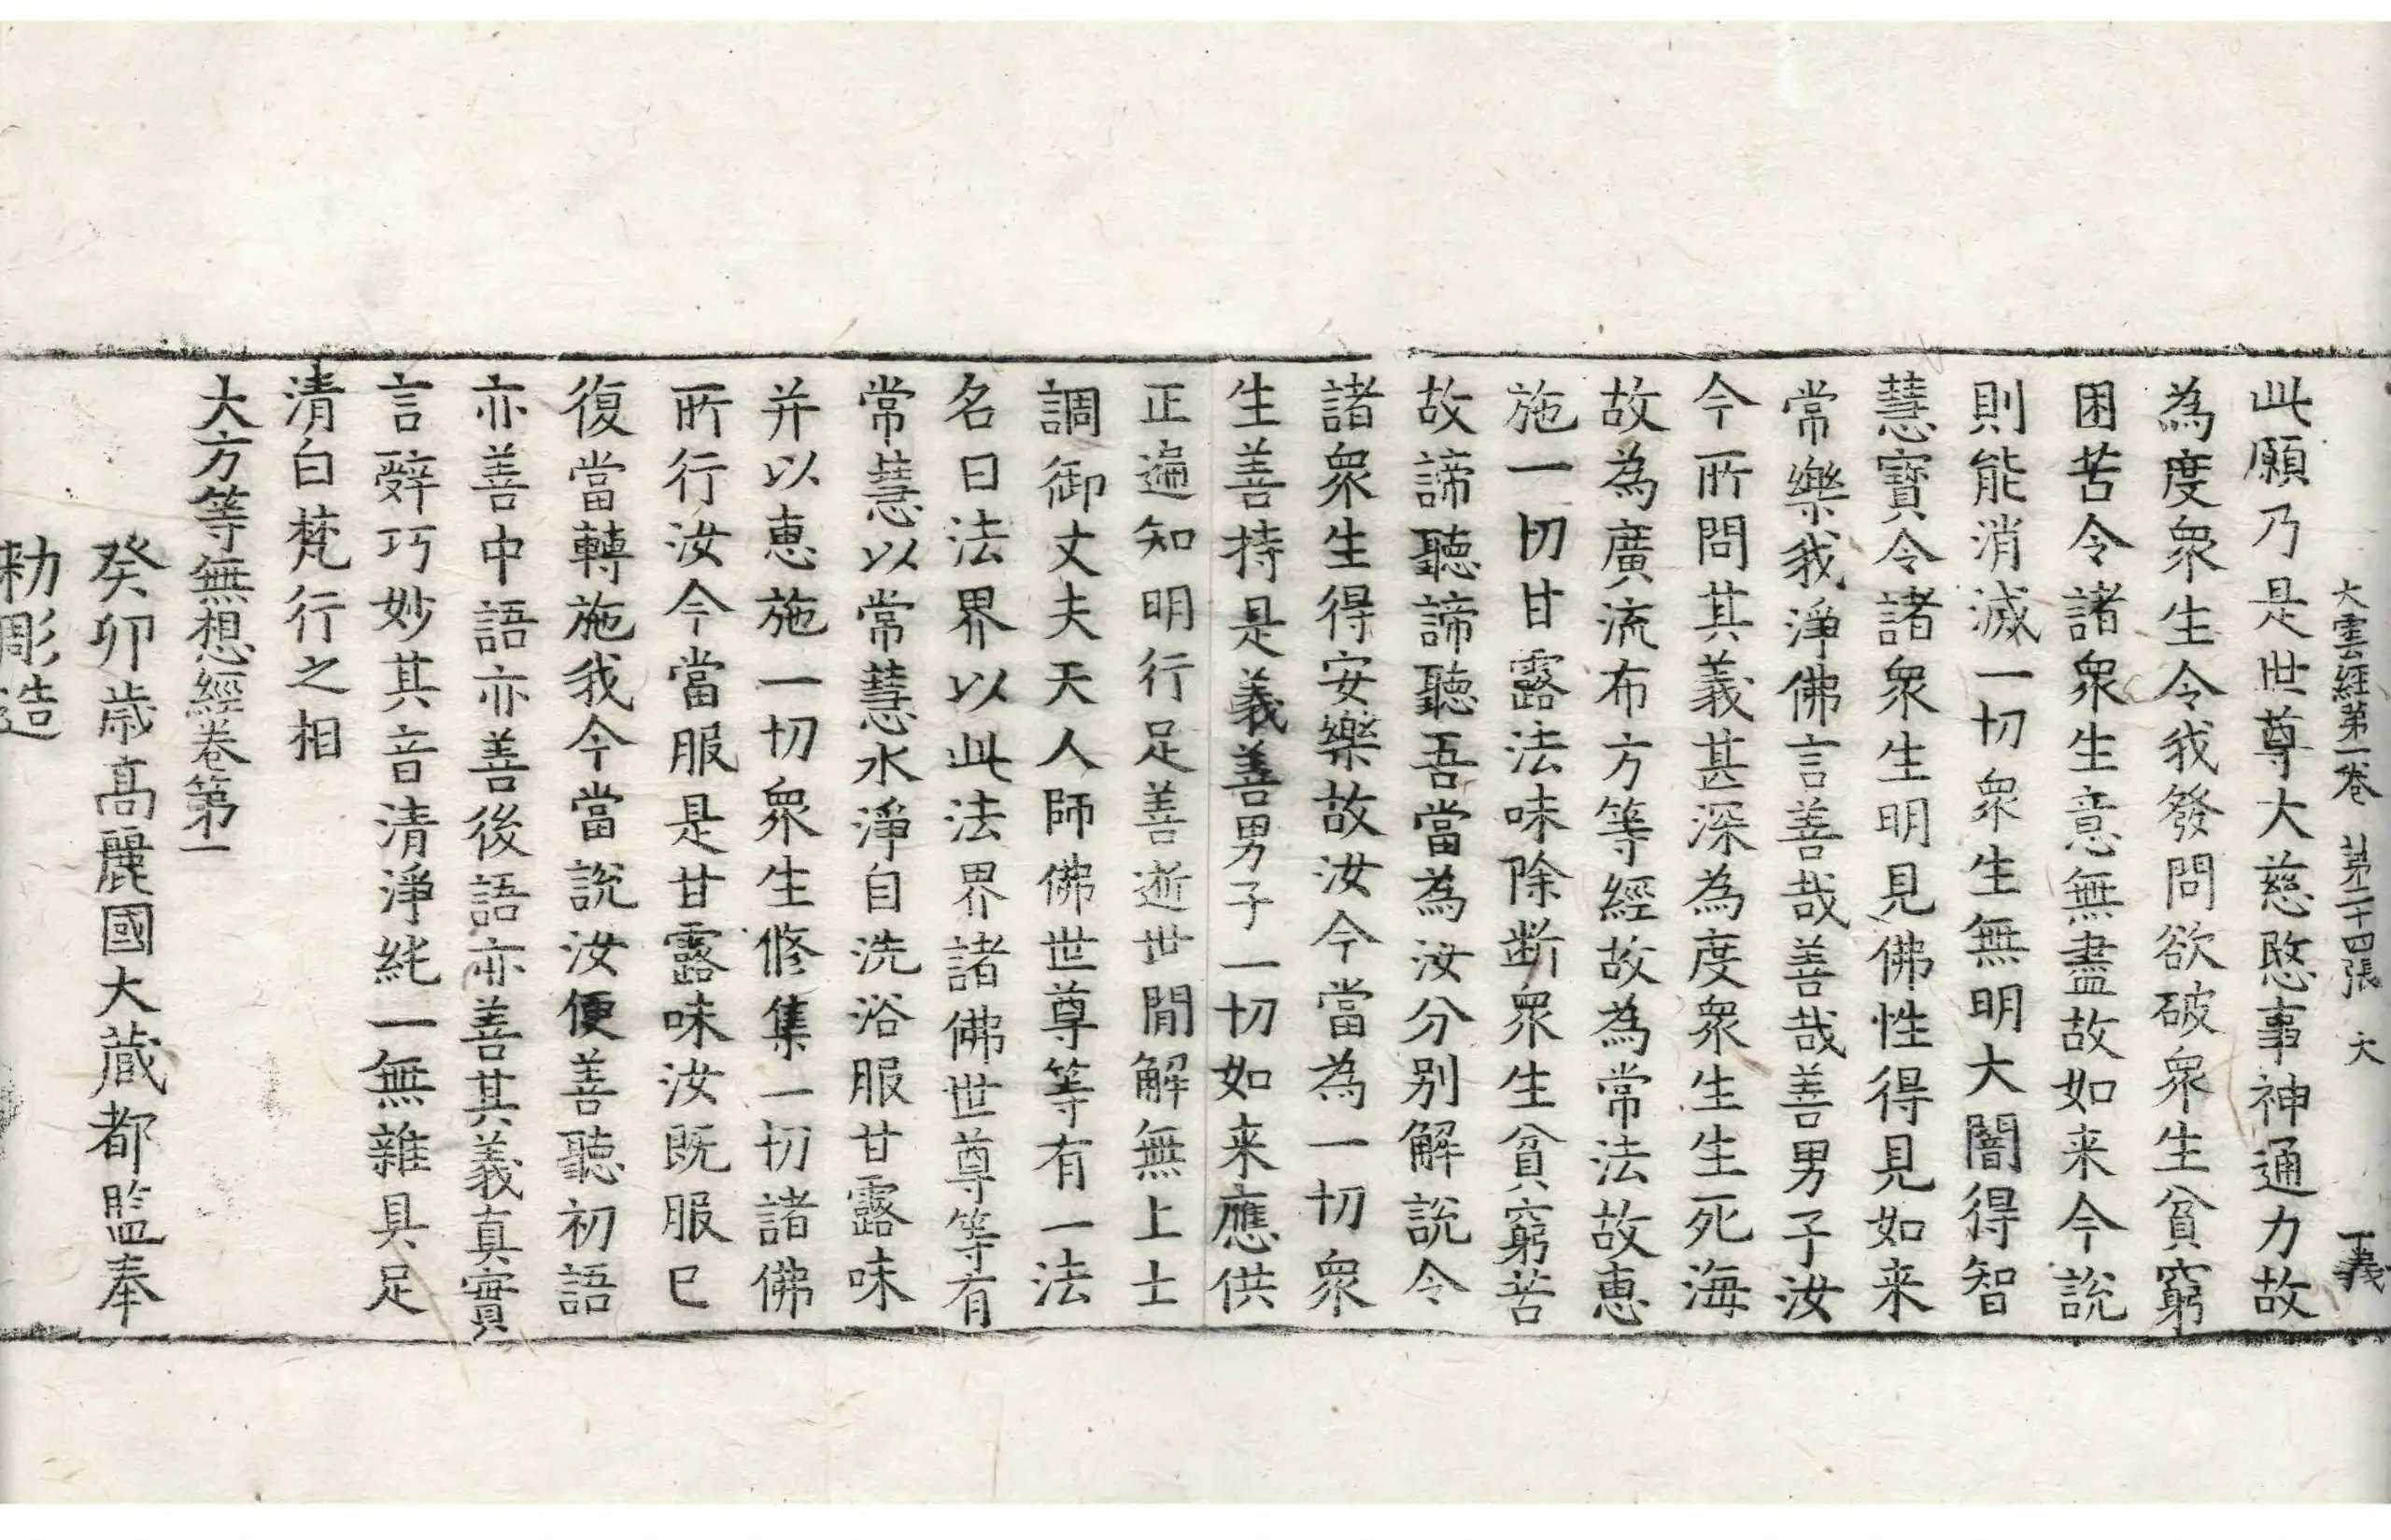 大雲經第一卷 第二十四張 大 義
此願乃是世尊大慈愍事神通力故
為度眾生令我發問欲破眾生貧窮
困苦令諸眾生意無盡故如来今說
則能消滅一切眾生無明大闇得智
慧寶令諸眾生明見佛性得見如来
常樂我淨佛言善哉善哉善男子汝
今所問其義甚深為度眾生生死海
故為廣流布方等經故為常法故恵
施一切甘露法味除断眾生貧窮苦
故諦聽諦聽吾當為汝分别解說令
諸眾生得安樂故汝今當為一切眾
生善持是義善男子一切如来應供
正遍知明行足善逝世間解無上士
調御丈夫天人師佛世尊等有一法
名曰法界以此法界諸佛世尊等有
常慧以常慧水淨自洗浴服甘露味
并以恵施一切眾生修集一切諸佛
所行汝今當服是甘露味汝既服已
復當轉施我今當說汝便善聽初語
亦善中語亦善後語亦善其義真實
言辤巧妙其音清淨純一無雜具足
清白梵行之相
大方等無想經卷第一
癸卯歲高麗國大藏都監奉
勑彫造